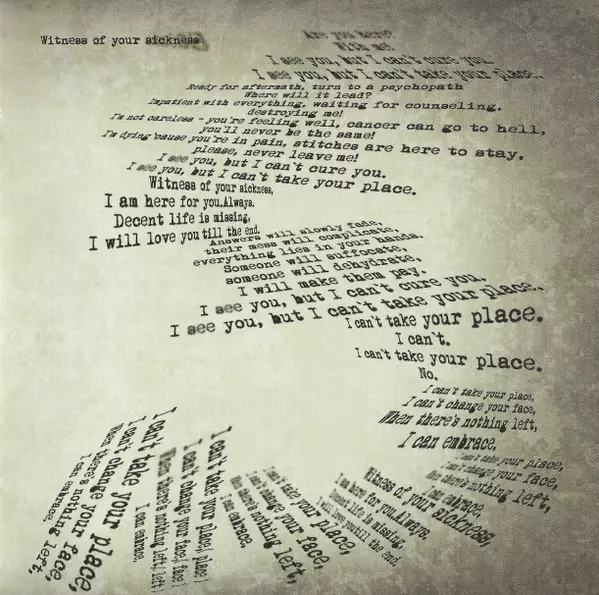 Witness of your sickness
Are you here?
With me!
I see you, but I can't cure you.
I see you, but I can't take your place..
Ready for aftermath, turn to a psychopath
Where will it lead?
Impatient with everything, waiting for counseling,
destroying me!
I'm not careless - you're feeling well, cancer can go to hell,
you'll never be the same!
I'm dying 'cause you're in pain, stitches are here to stay,
please, never leave me!
I see you, but I can't cure you.
I see you, but I can't take your place.
Witness of your sickness,
I am here for you.Always.
Decent life is missing,
I will love you till the end.
Answers will slowly fade,
their mess will complicate,
everything lies in your hands.
Someone will suffocate,
someone will dehydrate,
I will make them pay.
I see you, but I can't cure you.
I see you, but I can't take your place..
I can't take your place.
I can't.
I can't take your place.
No.
I can't take your place,
I can't change your face,
When there's nothing left,
I can embrace.
I can't take your place,
I can't change your face,
When there's nothing left,
I can embrace.
Witness of your sickness,
I am here for you.Always.
Decent life is missing,
I will love you till the end.
I can't take your place,
I can't change your face.
When there's nothing left,
I can embrace,
I can't take your place/ place/
I can't change your face/ face/
When there's nothing left/ left/
I can embrace.
I can't take your place,
I can't change your face,
When there's nothing left,
I can embrace.